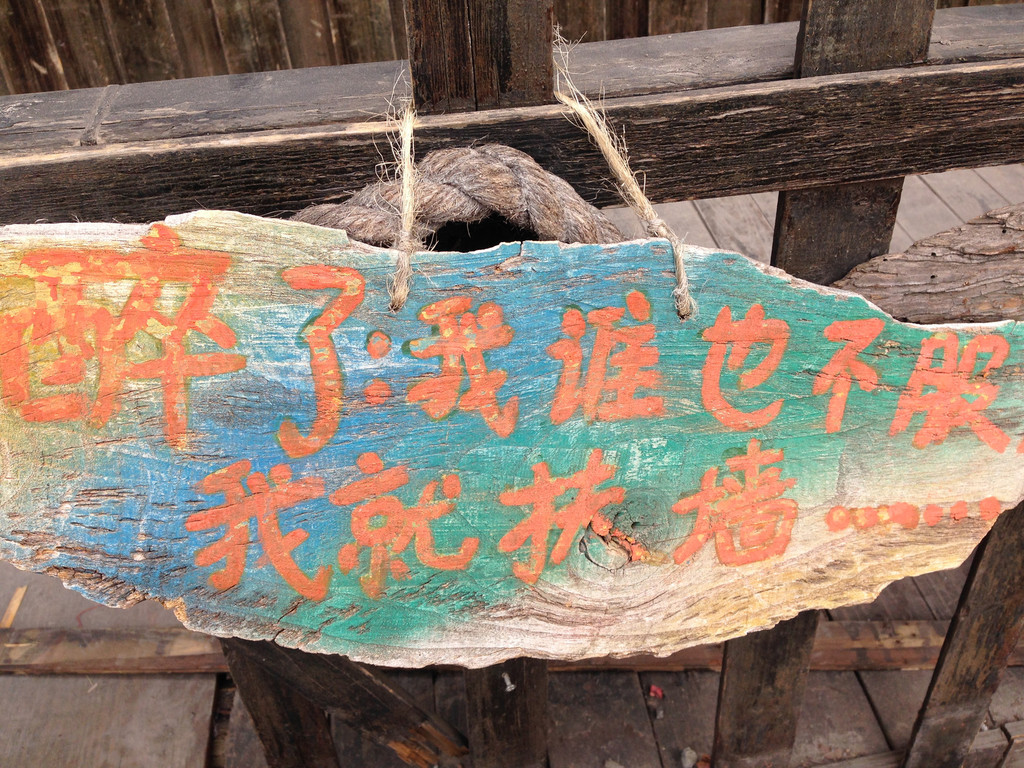 醉了:我谁也不服,
我就扶墙………